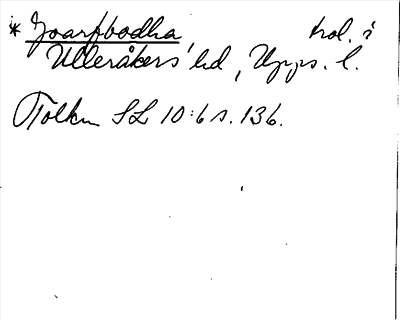 * Joarpbodha trol. i
Ulleråkers hd, Upps. l.
Tolkn SL 10:6 s. 136.